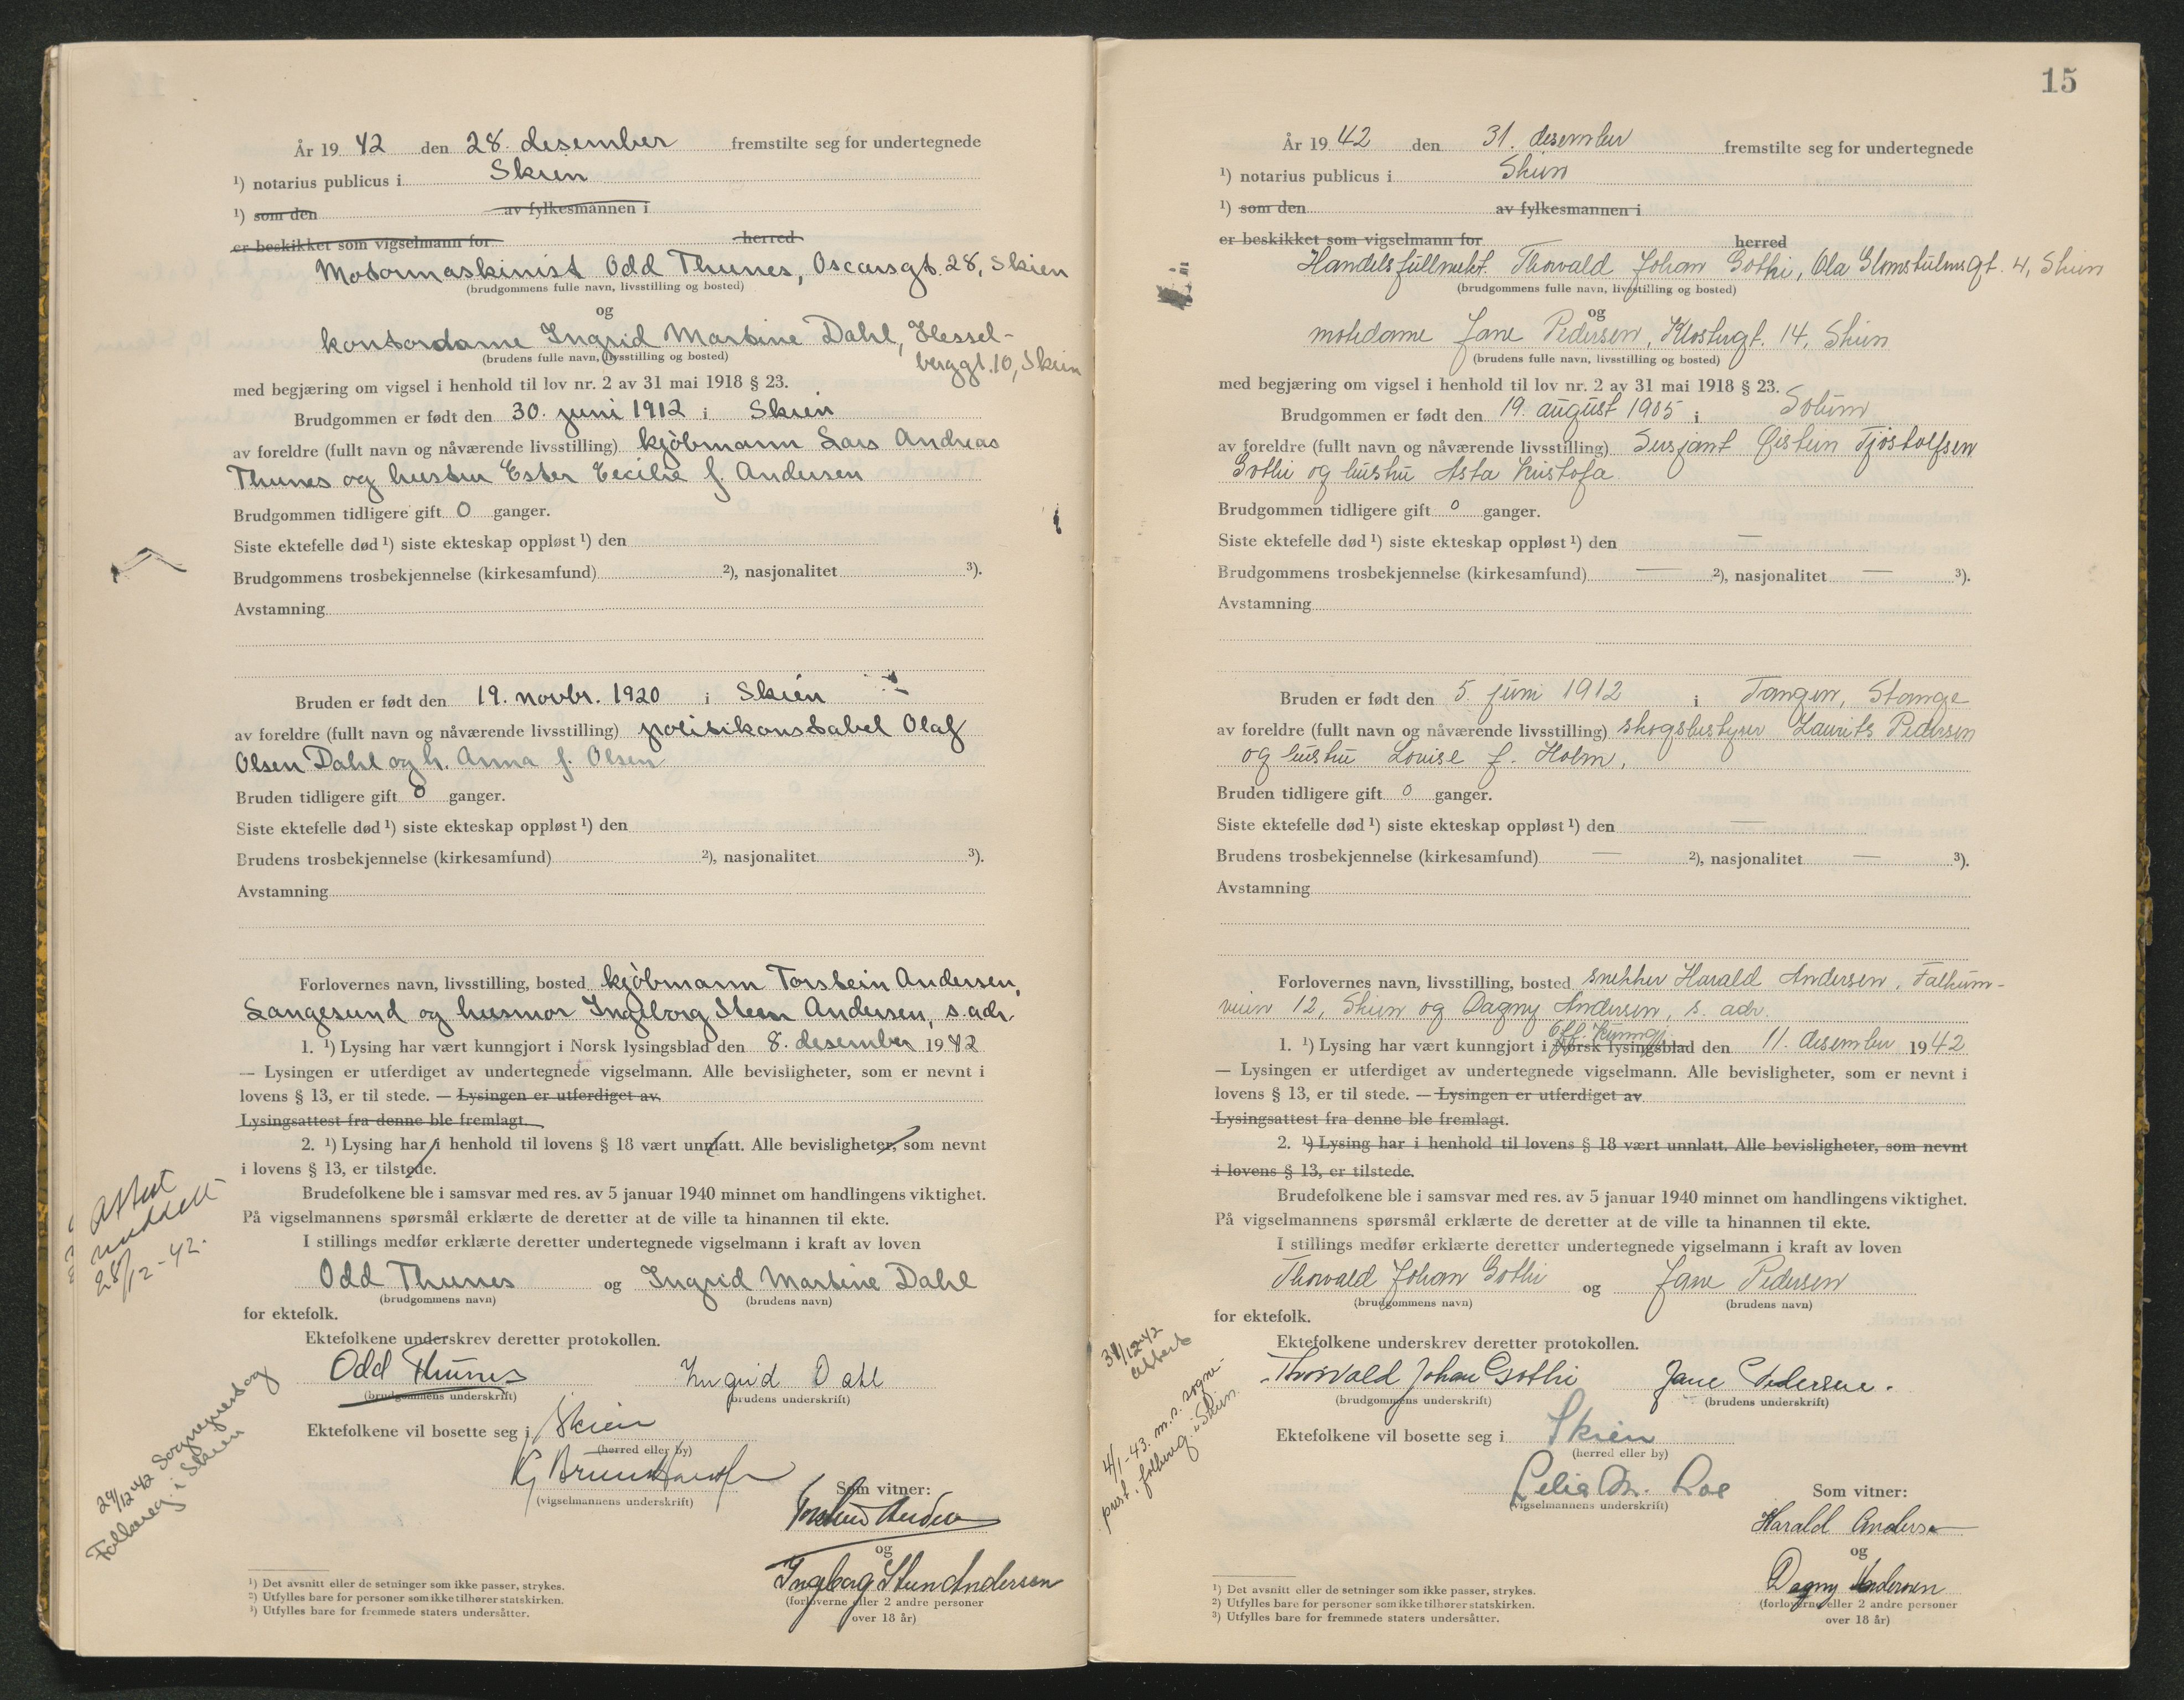 År 19 42 den 28. desember fremstilte seg for undertegnede
¹) notarius publicus i Skien
¹) som den av fylkesmannen i
er beskikket som vigselmann for herred
Motormaskinist Odd Thunes, Oscarsgt. 28, Skien
(brudgommens fulle navn, livsstilling og bosted)
og
kontordame Ingrid Martine Dahl, Hessel-
berggt. 10, Skien
(brudens fulle navn, livsstilling og bosted)
med begjæring om vigsel i henhold til lov nr. 2 av 31 mai 1918 § 23.
Brudgommen er født den 30. juni 1912 i Skien
av foreldre (fullt navn og nåværende livsstilling) kjöbmann Lars Andreas
Thunes og hustru Ester Cecilie f. Andersen
Brudgommen tidligere gift 0 ganger.
Siste ektefelle død ¹) siste ekteskap oppløst ¹) den
Brudgommens trosbekjennelse (kirkesamfund) ²), nasjonalitet ³).
Avstamning
Bruden er født den 19. novbr. 1920 i Skien
av foreldre (fullt navn og nåværende livsstilling) politikonstabel Olaf
Olsen Dahl og h. Anna f. Olsen
Bruden tidligere gift 0 ganger.
Siste ektefelle død ¹) siste ekteskap oppløst ¹) den
Brudens trosbekjennelse (kirkesamfund) ²), nasjonalitet ³).
Avstamning
Forlovernes navn, livsstilling, bosted kjöbmann Torstein Andersen,
Langesund og husmor Ingeborg Steen Andersen, s. adr.
1. ¹) Lysing har vært kunngjort i Norsk lysingsblad den 8. desember 1942
— Lysingen er utferdiget av undertegnede vigselmann. Alle bevisligheter, som er nevnt i
lovens § 13, er til stede. — Lysingen er utferdiget av
Lysingsattest fra denne ble fremlagt.
2. ¹) Lysing har i henhold til lovens § 18 vært unnlatt. Alle bevisligheter, som nevnt
i lovens § 13, er tilstede.
Brudefolkene ble i samsvar med res. av 5 januar 1940 minnet om handlingens viktighet.
På vigselmannens spørsmål erklærte de deretter at de ville ta hinannen til ekte.
I stillings medfør erklærte deretter undertegnede vigselmann i kraft av loven
Odd Thunes og Ingrid Martine Dahl
(brudgommens navn) (brudens navn)
for ektefolk.
Ektefolkene underskrev deretter protokollen.
Odd Thunes Ingrid Dahl
(brudgommens underskrift) (brudens underskrift)
Ektefolkene vil bosette seg i Skien
(herred eller by)
(vigselmannens underskrift)
Som vitner:
Torstein Andersen
og
Ingeborg Steen Andersen
(forloverne eller 2 andre personer
over 18 år)
Attest
meddelt
28/12-42.
29/12-42 Sogneprest og
Folkereg. i Skien
¹) Det avsnitt eller de setninger som ikke passer, strykes.
²) Utfylles bare for personer som ikke tilhører statskirken.
³) Utfylles bare for fremmede staters undersåtter.
15
År 19 42 den 31. desember fremstilte seg for undertegnede
¹) notarius publicus i Skien
¹) som den av fylkesmannen i
er beskikket som vigselmann for herred
Handelsfullmekt. Thorvald Johan Gothi, Ola Glomstulensgt. 4, Skien
(brudgommens fulle navn, livsstilling og bosted)
og
motedame Jane Pedersen, Klostergt. 14, Skien
(brudens fulle navn, livsstilling og bosted)
med begjæring om vigsel i henhold til lov nr. 2 av 31 mai 1918 § 23.
Brudgommen er født den 19. august 1905 i Solum
av foreldre (fullt navn og nåværende livsstilling) Sersjant Øistein Tjöstolfsen
Gothi og hustru Asta Kristofa
Brudgommen tidligere gift 0 ganger.
Siste ektefelle død ¹) siste ekteskap oppløst ¹) den —
Brudgommens trosbekjennelse (kirkesamfund) — ²), nasjonalitet — ³).
Avstamning
Bruden er født den 5. juni 1912 i Tangen, Stange
av foreldre (fullt navn og nåværende livsstilling) skogsbestyrer Laurits Pedersen
og hustru Louise f. Holm.
Bruden tidligere gift 0 ganger.
Siste ektefelle død ¹) siste ekteskap oppløst ¹) den —
Brudens trosbekjennelse (kirkesamfund) — ²), nasjonalitet — ³).
Avstamning
Forlovernes navn, livsstilling, bosted snekker Harald Andersen, Falkum-
veien 12, Skien og Dagny Andersen, s. adr.
Off. kunngj.
1. ¹) Lysing har vært kunngjort i Norsk lysingsblad den 11. desember 1942
— Lysingen er utferdiget av undertegnede vigselmann. Alle bevisligheter, som er nevnt i
lovens § 13, er til stede. — Lysingen er utferdiget av
Lysingsattest fra denne ble fremlagt.
2. ¹) Lysing har i henhold til lovens § 18 vært unnlatt. Alle bevisligheter, som nevnt
i lovens § 13, er tilstede.
Brudefolkene ble i samsvar med res. av 5 januar 1940 minnet om handlingens viktighet.
På vigselmannens spørsmål erklærte de deretter at de ville ta hinannen til ekte.
I stillings medfør erklærte deretter undertegnede vigselmann i kraft av loven
Thorvald Johan Gothi og Jane Pedersen
(brudgommens navn) (brudens navn)
for ektefolk.
Ektefolkene underskrev deretter protokollen.
Thorvald Johan Gothi Jane Pedersen.
(brudgommens underskrift) (brudens underskrift)
Ektefolkene vil bosette seg i Skien
(herred eller by)
(vigselmannens underskrift)
Som vitner:
Harald Andersen
og
Dagny Andersen
(forloverne eller 2 andre personer
over 18 år)
31/12-42
attest
4/1-43. m. s. sogne-
prest. folkereg. i Skien.
¹) Det avsnitt eller de setninger som ikke passer, strykes.
²) Utfylles bare for personer som ikke tilhører statskirken.
³) Utfylles bare for fremmede staters undersåtter.